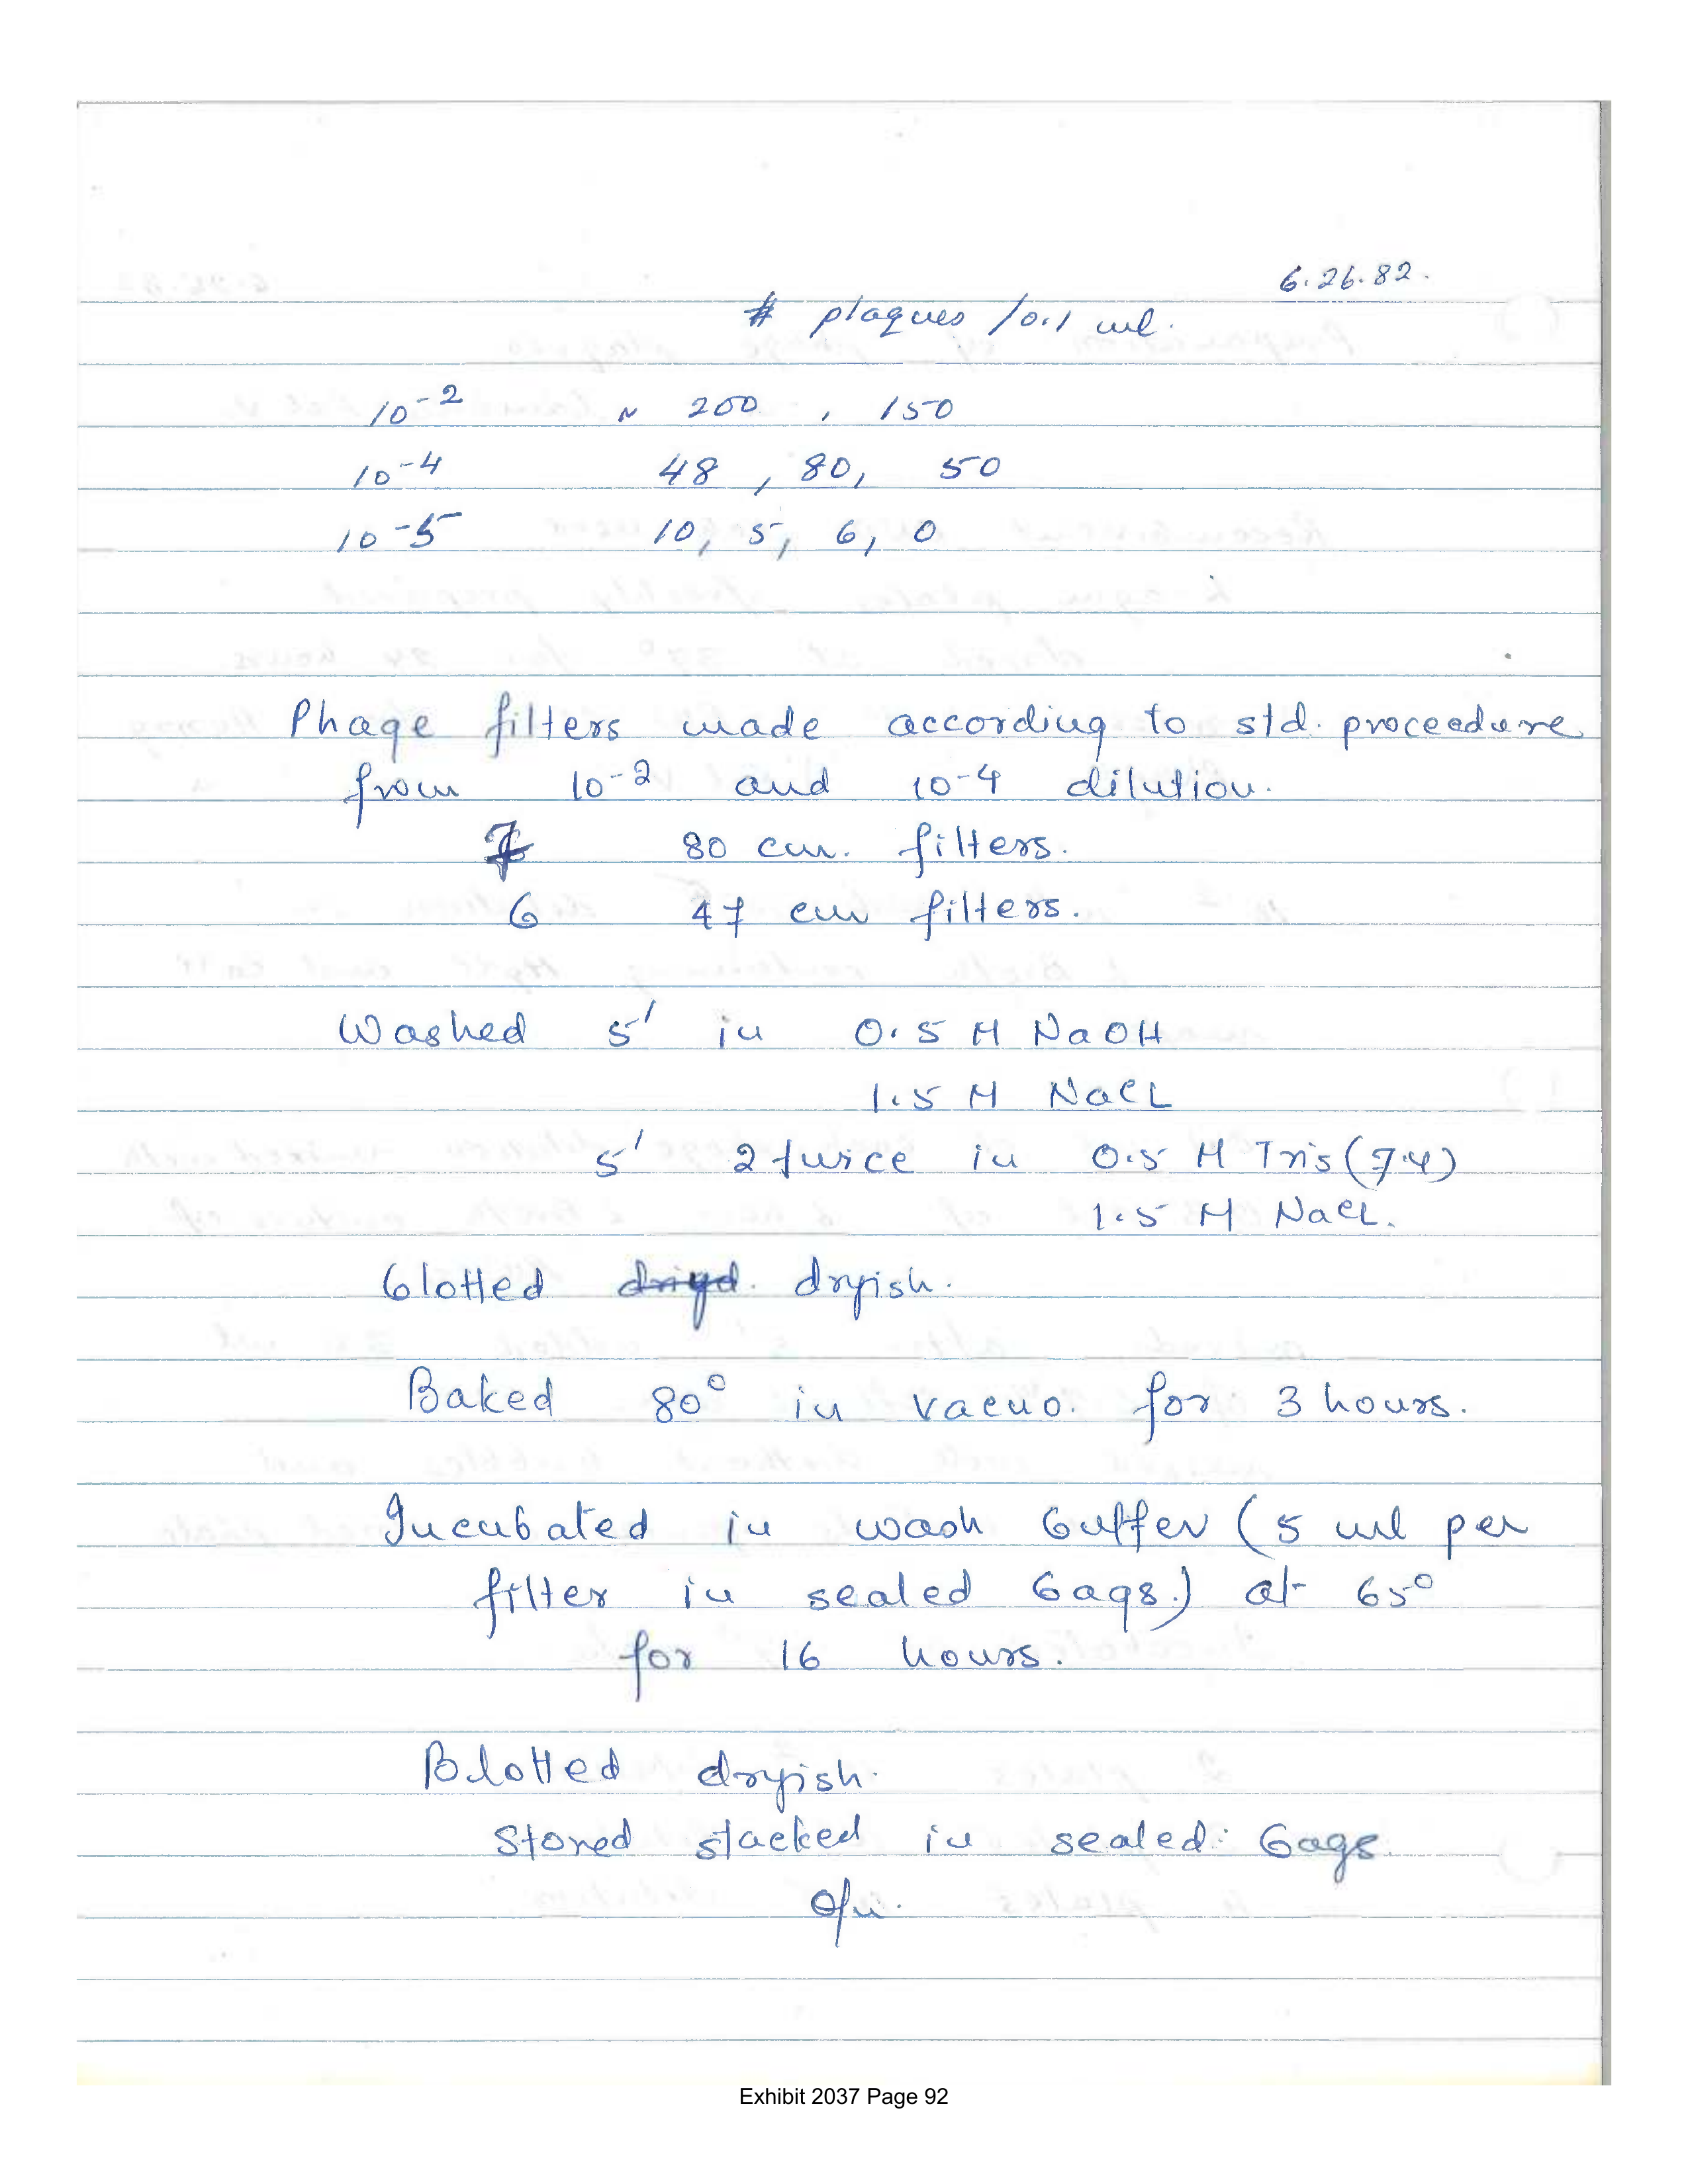 6.26.82.
# plaques /0.1 ml.
10⁻² ~ 200 , 150
10⁻⁴ 48 , 80, 50
10⁻⁵ 10, 5, 6, 0
Phage filters made according to std. proceedure
from 10⁻² and 10⁻⁴ dilution.
7 80 cm. filters.
6 47 cm filters.
Washed 5' in 0.5 M NaOH
1.5 M NaCL
5' 2 twice in 0.5 M Tris (7.4)
1.5 M NaCL.
blotted dryish.
Baked 80° in vacuo. for 3 hours.
Incubated in wash buffer (5 ml per
filter in sealed bags.) at 65°
for 16 hours.
Blotted dryish.
Stored stacked in sealed bags
o/n.
Exhibit 2037 Page 92